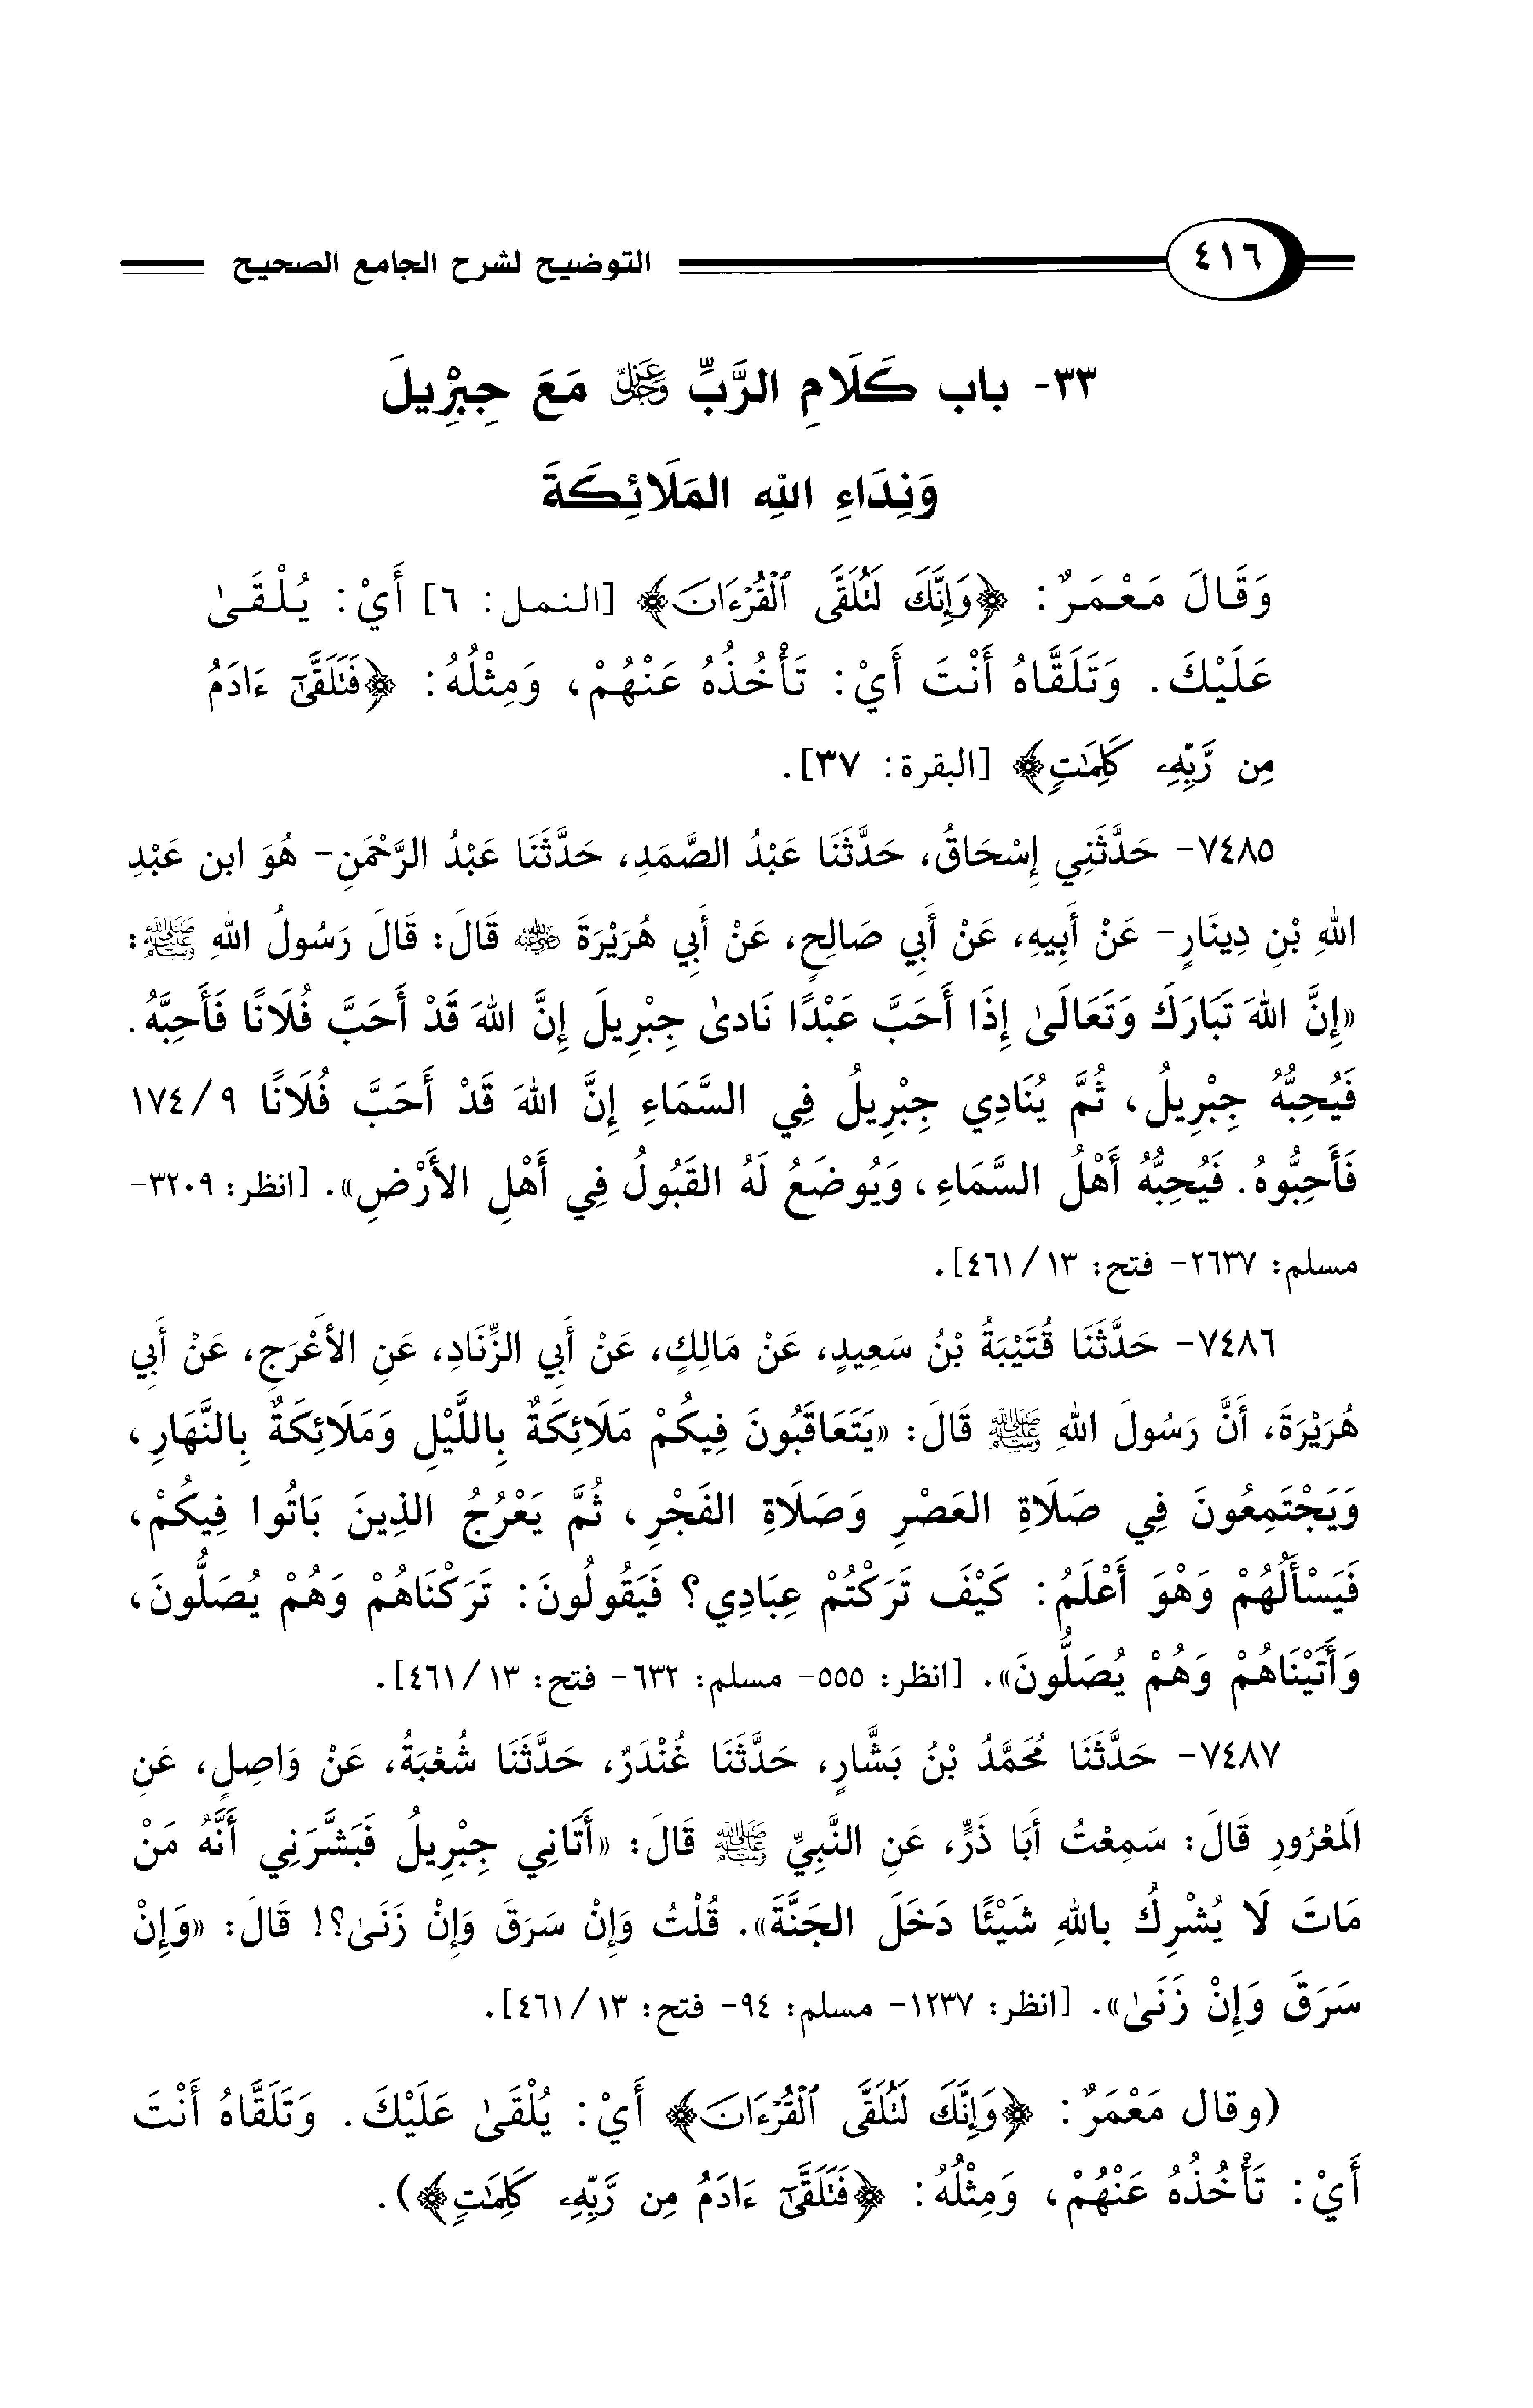 ٤١٦ التوضيح لشرح الجامع الصحيح
٣٣- باب كَلَامِ الرَّبِّ عَزَّ وَجَلَّ مَعَ جِبْرِيلَ
وَنِدَاءِ اللهِ المَلَائِكَةَ
وَقَالَ مَعْمَرٌ: ﴿وَإِنَّكَ لَتُلَقَّى ٱلْقُرْءَانَ﴾ [النمل: ٦] أَيْ: يُلْقَىٰ
عَلَيْكَ. وَتَلَقَّاهُ أَنْتَ أَيْ: تَأْخُذُهُ عَنْهُمْ، وَمِثْلُهُ: ﴿فَتَلَقَّىٰٓ ءَادَمُ
مِن رَّبِّهِۦ كَلِمَٰتٍ﴾ [البقرة: ٣٧].
٧٤٨٥- حَدَّثَنِي إِسْحَاقُ، حَدَّثَنَا عَبْدُ الصَّمَدِ، حَدَّثَنَا عَبْدُ الرَّحْمَنِ- هُوَ ابن عَبْدِ
اللهِ بْنِ دِينَارٍ- عَنْ أَبِيهِ، عَنْ أَبِي صَالِحٍ، عَنْ أَبِي هُرَيْرَةَ رضي الله عنه قَالَ: قَالَ رَسُولُ اللهِ ﷺ:
«إِنَّ اللهَ تَبَارَكَ وَتَعَالَىٰ إِذَا أَحَبَّ عَبْدًا نَادىٰ جِبْرِيلَ إِنَّ اللهَ قَدْ أَحَبَّ فُلَانًا فَأَحِبَّهُ.
فَيُحِبُّهُ جِبْرِيلُ، ثُمَّ يُنَادِي جِبْرِيلُ فِي السَّمَاءِ إِنَّ اللهَ قَدْ أَحَبَّ فُلَانًا ٩/ ١٧٤
فَأَحِبُّوهُ. فَيُحِبُّهُ أَهْلُ السَّمَاءِ، وَيُوضَعُ لَهُ القَبُولُ فِي أَهْلِ الأَرْضِ». [انظر: ٣٢٠٩-
مسلم: ٢٦٣٧- فتح: ١٣/ ٤٦١].
٧٤٨٦- حَدَّثَنَا قُتَيْبَةُ بْنُ سَعِيدٍ، عَنْ مَالِكٍ، عَنْ أَبِي الزِّنَادِ، عَنِ الأَعْرَجِ، عَنْ أَبِي
هُرَيْرَةَ، أَنَّ رَسُولَ اللهِ ﷺ قَالَ: «يَتَعَاقَبُونَ فِيكُمْ مَلَائِكَةٌ بِاللَّيْلِ وَمَلَائِكَةٌ بِالنَّهَارِ،
وَيَجْتَمِعُونَ فِي صَلَاةِ العَصْرِ وَصَلَاةِ الفَجْرِ، ثُمَّ يَعْرُجُ الذِينَ بَاتُوا فِيكُمْ،
فَيَسْأَلُهُمْ وَهْوَ أَعْلَمُ: كَيْفَ تَرَكْتُمْ عِبَادِي؟ فَيَقُولُونَ: تَرَكْنَاهُمْ وَهُمْ يُصَلُّونَ،
وَأَتَيْنَاهُمْ وَهُمْ يُصَلُّونَ». [انظر: ٥٥٥- مسلم: ٦٣٢- فتح: ١٣/ ٤٦١].
٧٤٨٧- حَدَّثَنَا مُحَمَّدُ بْنُ بَشَّارٍ، حَدَّثَنَا غُنْدَرٌ، حَدَّثَنَا شُعْبَةُ، عَنْ وَاصِلٍ، عَنِ
المَعْرُورِ قَالَ: سَمِعْتُ أَبَا ذَرٍّ، عَنِ النَّبِيِّ ﷺ قَالَ: «أَتَانِي جِبْرِيلُ فَبَشَّرَنِي أَنَّهُ مَنْ
مَاتَ لَا يُشْرِكُ بِاللهِ شَيْئًا دَخَلَ الجَنَّةَ». قُلْتُ وَإِنْ سَرَقَ وَإِنْ زَنَىٰ؟! قَالَ: «وَإِنْ
سَرَقَ وَإِنْ زَنَىٰ». [انظر: ١٢٣٧- مسلم: ٩٤- فتح: ١٣/ ٤٦١].
(وقال مَعْمَرٌ: ﴿وَإِنَّكَ لَتُلَقَّى ٱلْقُرْءَانَ﴾ أَيْ: يُلْقَىٰ عَلَيْكَ. وَتَلَقَّاهُ أَنْتَ
أَيْ: تَأْخُذُهُ عَنْهُمْ، وَمِثْلُهُ: ﴿فَتَلَقَّىٰٓ ءَادَمُ مِن رَّبِّهِۦ كَلِمَٰتٍ﴾).